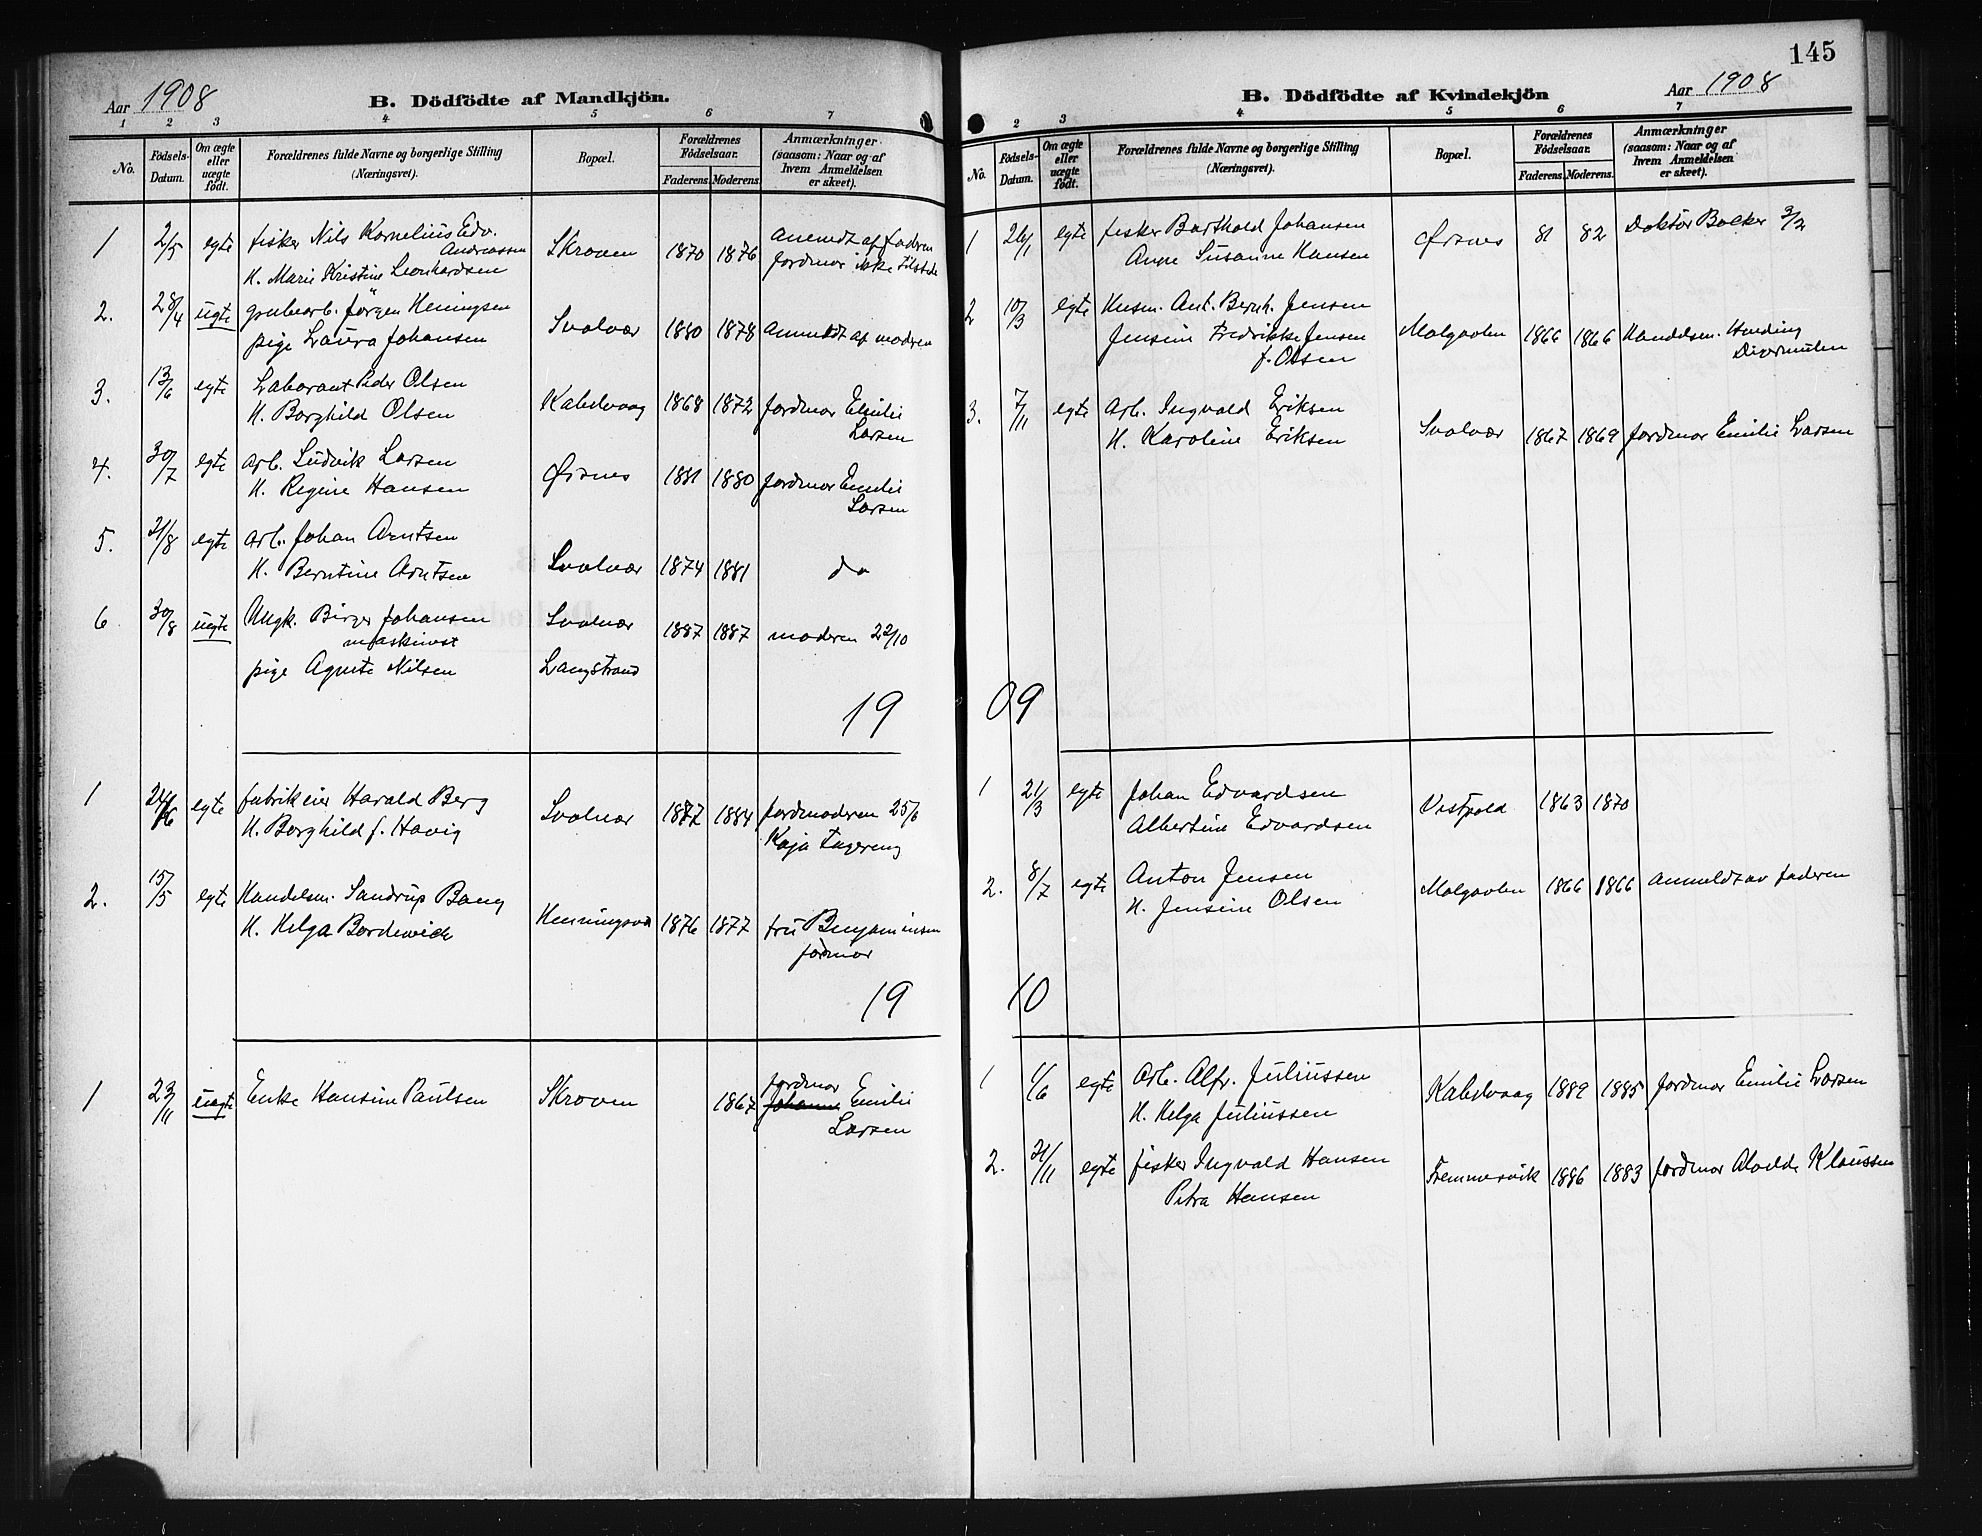 145
Aar 1908
B. Dödfödte af Mandkjön.
1 2 3 4 5 6 7
No.
Födsels-Datum.
Om ægte eller uægte födt.
Forældrenes fulde Navne og borgerlige Stilling (Næringsvei).
Bopæl.
Forældrenes Födselsaar.
Faderens. Moderens.
Anmærkninger (saasom: Naar og af hvem Anmeldelsen er skeet).
1 2/5 egte fisker Nils Kornelius Edv. Andreassen
H. Marie Kristine Leonhardsen
Skroven 1870 1876 Anmeldt af faderen
Jordmor ikke tilstede
2. 28/4 uegte grubearb. Jørgen Heningsen
pige Laura Johansen
Svolvær 1880 1878 Anmeldt af moderen
3. 13/6 egte Laborant Peder Olsen
H. Borghild Olsen
Kabelvaag 1868 1872 Jordmor Emilie
Larsen
4. 30/7 egte Arb. Ludvik Larsen
H. Regine Hansen
Ørsnes 1881 1880 Jordmor Emilie
Larsen
5. 31/8 egte Arb. Johan Arntsen
H. Berntine Arntsen
Svolvær 1874 1881 do
6 30/8 uegte Ungk. Birger Johansen
maskinist
Svolvær
1887 1887 moderen 22/10
pige Agnete Nilsen
Langstrand
19
1 24/6 egte fabrikeier Harald Berg
H. Borghild f. Havig
Svolvær 1877 1884 Jordmoderen 25/6
Kaja
2. 15/5 egte Handelsm. Sandrup Bang
H. Helga Bordewick
Henningsvæ 1876 1877 fru Benjaminsen
jordmor
19
1 23/11 uegte Enke Hansine Paulsen
Skroven 1867 Jordmor
Johanne Emilie
Larsen
B. Dödfödte af Kvindekjön
Aar 1908
2 3 4 5 6 7
No.
Födsels-Datum.
Om ægte eller uægte födt.
Forældrenes fulde Navne og borgerlige Stilling (Næringsvei).
Bopæl.
Forældrenes Födselsaar.
Faderens. Moderens.
Anmærkninger (saasom: Naar og af hvem Anmeldelsen er skeet).
1 26/1 egte fisker Barthold Johansen
Anne Susanne Hansen
Ørsnes 81 82 Doktor Bocker 3/2
2 10/3 egte Husm. Ant. Bernh. Jensen
Jensine Fredrikke Jensen
f. Olsen
Molgavlen 1866 1866 Handelsm. Harding
Digermulen
3. 7/11 egte Arb. Ingvald Eriksen
H. Karoline Eriksen
Svolvær 1867 1869 Jordmor Emilie Larsen
09
1 21/3 egte Johan Edvardsen
Albertine Edvardsen
Vestpold 1863 1870
2. 8/7 egte Anton Jensen
H. Jensine Olsen
Molgavlen 1866 1866 Anmeldt av faderen
10
1 1/6 egte Arb. Alfr. Juliussen
H. Helga Juliussen
Kabelvaag 1889 1885 Jordmor Emilie Larsen
2. 21/11 egte fisker Ingvald Hansen
Petra Hansen
Fremmervik 1886 1883 Jordmor Alvilde Klaussen